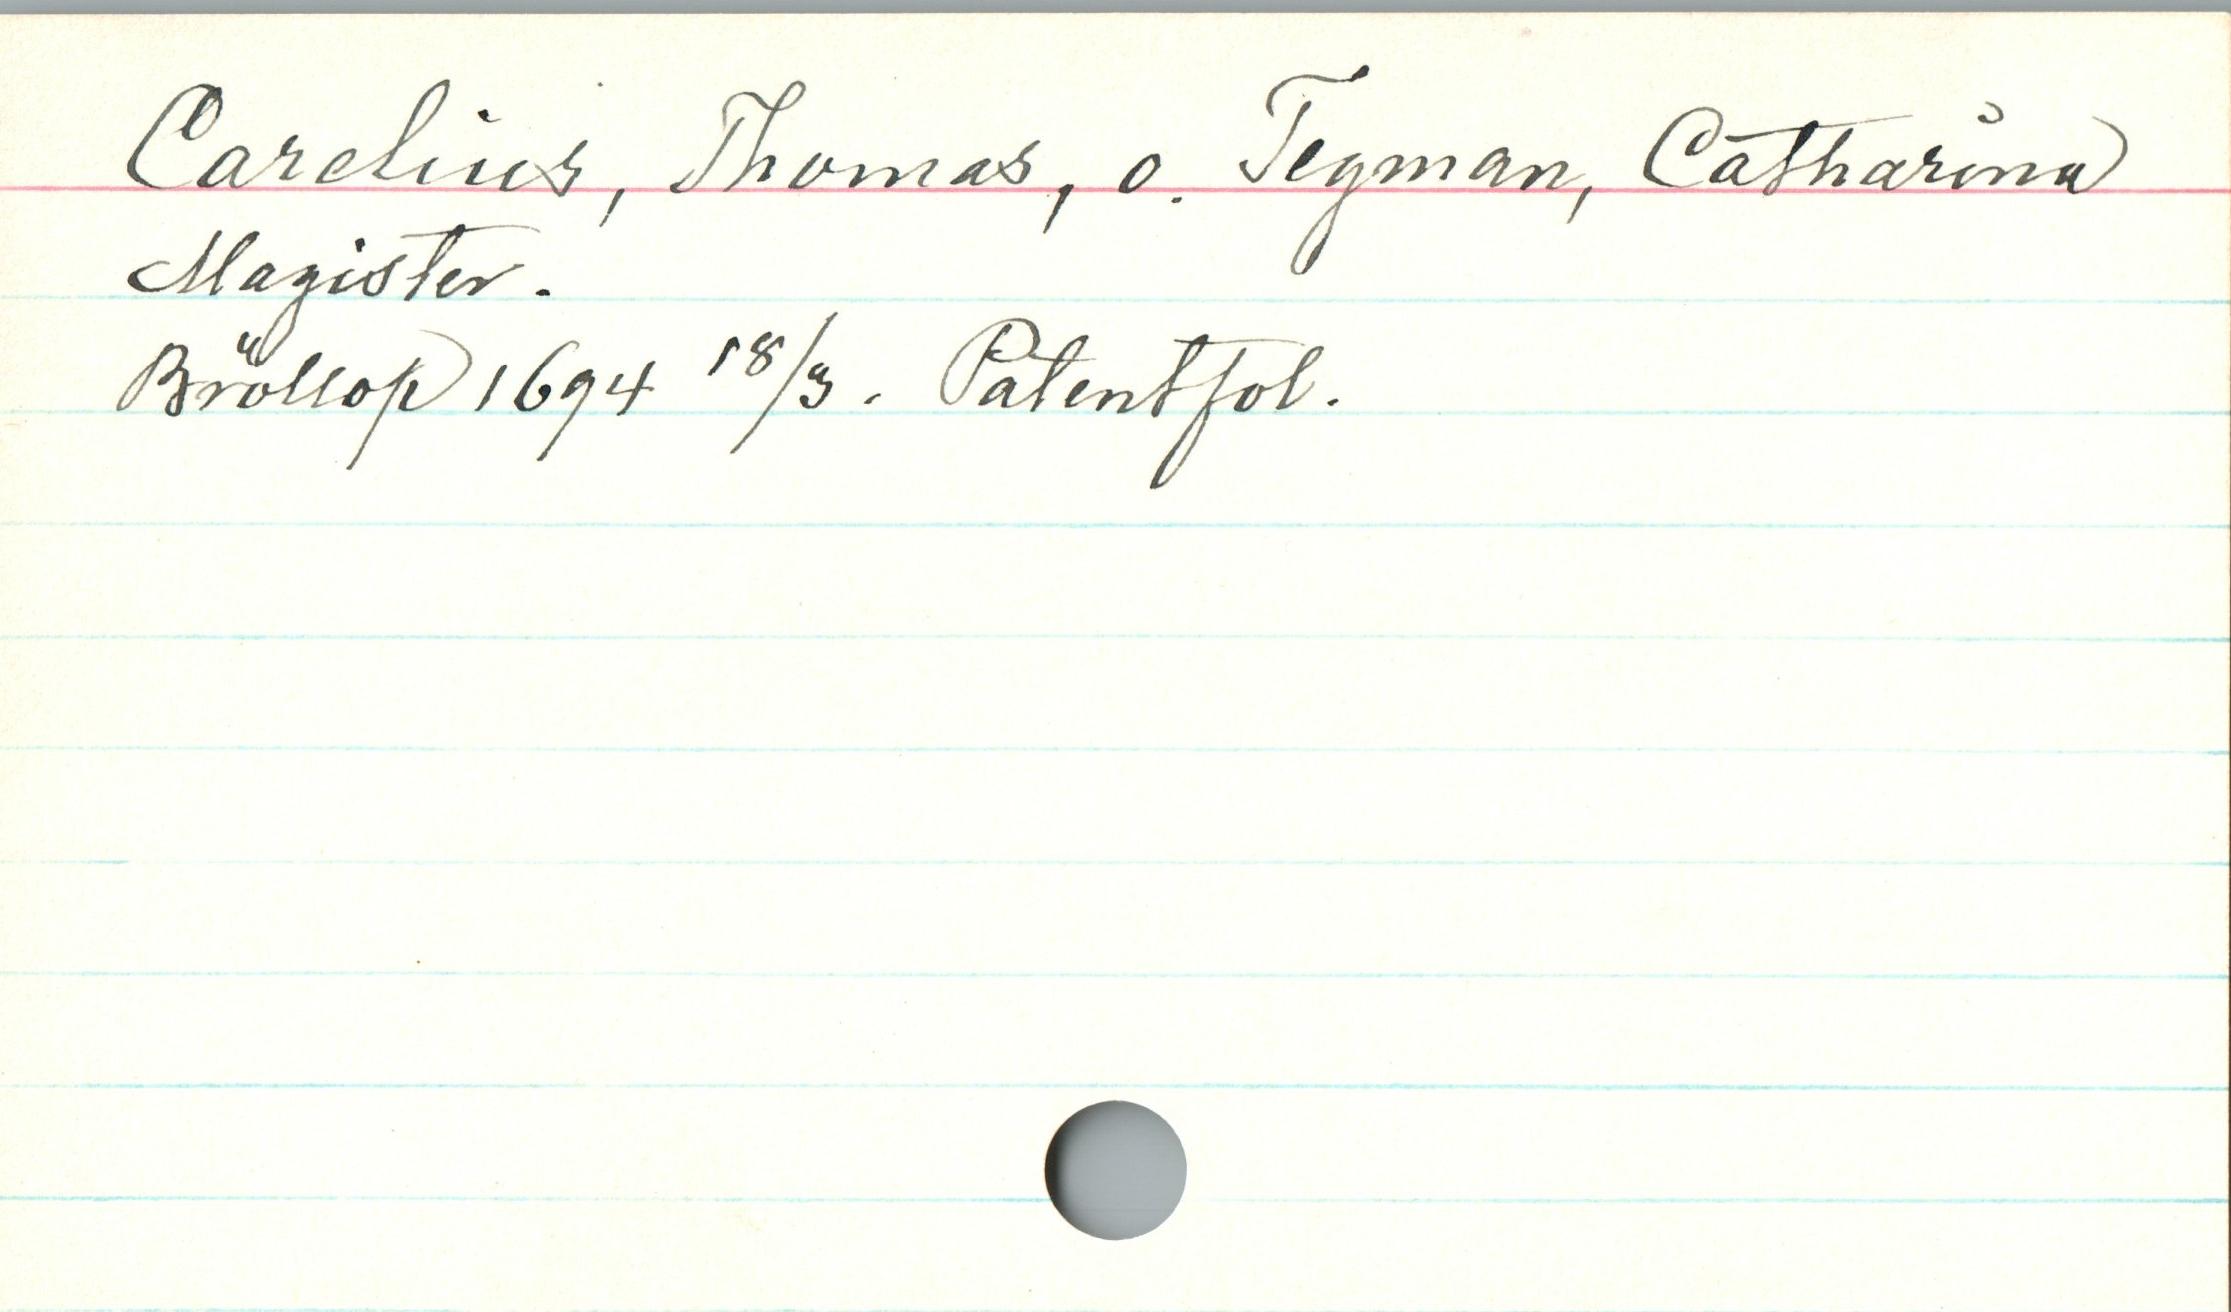 Carelius, Thomas, o. Tegman, Catharina
Magister.
Bröllop 1694 18/3. Patentfol.